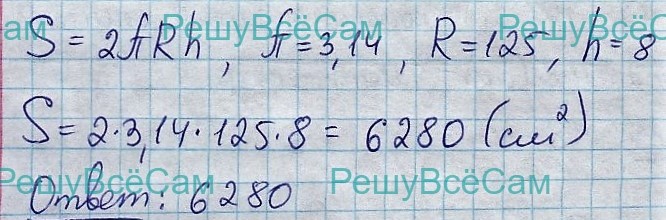 РешуВсёСам РешуВсёСам
S = 2πRh, π=3,14, R=125, h=8
S = 2·3,14·125·8 = 6280 (см²)
РешуВсёСам РешуВсёСам
Ответ: 6280